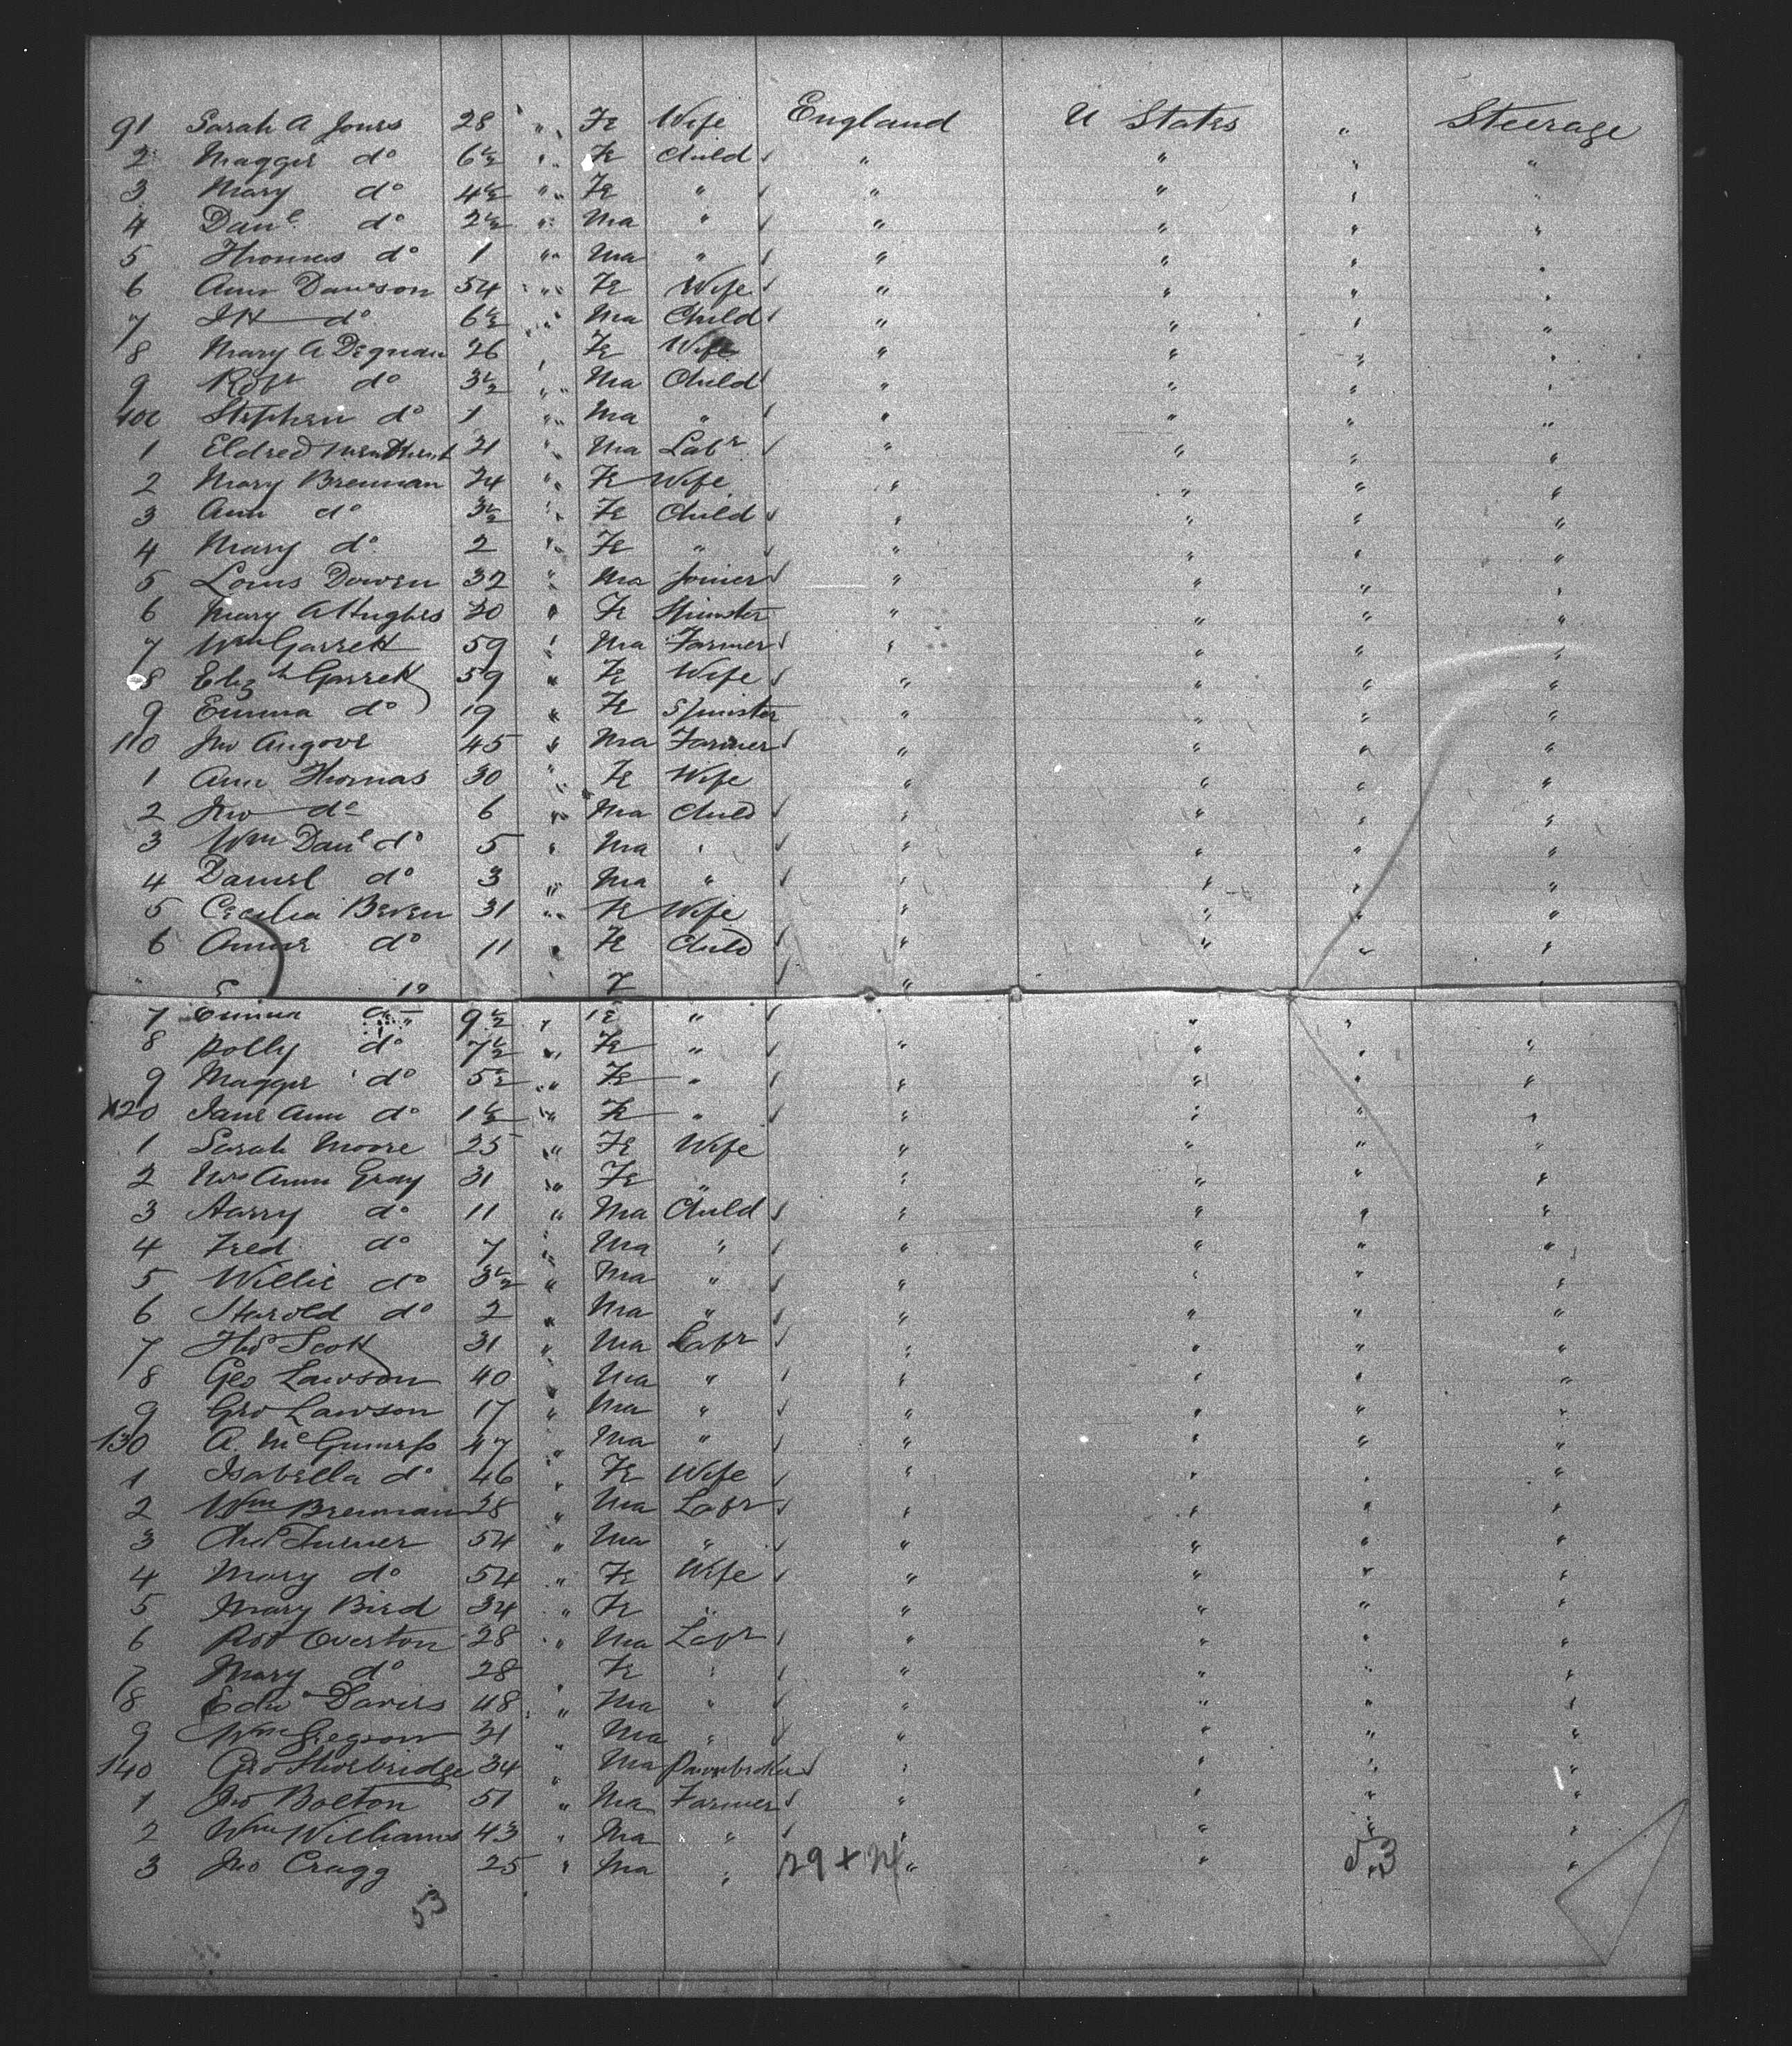 91 Sarah A Jones 28 " Fe Wife England U States " Steerage
2 Maggie do 6 1/2 " Fe Child " " " "
3 Mary do 4 1/2 " Fe " " " " "
4 Danl do 2 1/2 " Ma " " " " "
5 Thomas do 1 " Ma " " " " "
6 Ann Dawson 54 " Fe Wife " " " "
7 do 6 1/2 " Ma Child " " " "
8 Mary A Degnan 26 " Fe Wife " " " "
9 Robt do 3 1/2 " Ma Child " " " "
100 Stephen do 1 " Ma " " " " "
1 Eldred 21 " Ma Labr " " " "
2 Mary Brennan 24 " Fe Wife " " " "
3 Ann do 3 1/2 " Fe Child " " " "
4 Mary do 2 " Fe " " " " "
5 Louis Dowen 32 " Ma Joiner " " " "
6 Mary A Hughes 30 " Fe Spinster " " " "
7 Wm Garrett 59 " Ma Farmer " " " "
8 Elizth Garrett 59 " Fe Wife " " " "
9 Emma do 19 " Fe Spinster " " " "
110 Jno Angove 45 " Ma Farmer " " " "
1 Ann Thomas 30 " Fe Wife " " " "
2 Jno do 6 " Ma Child " " " "
3 Wm Danl do 5 " Ma " " " " "
4 Daniel do 3 " Ma " " " " "
5 Cecelia Beven 31 " Fe Wife " " " "
6 Annie do 11 " Fe Child " " " "
7 Emma do 9 1/2 " Fe " " " "
8 Polly do 7 1/2 " Fe " " " " "
9 Maggie do 5 1/2 " Fe " " " " "
120 Jane Ann do 1 1/2 " Fe " " " " "
1 Sarah Moore 25 " Fe Wife " " " "
2 Mrs Ann Gray 31 " Fe " " " " "
3 Harry do 11 " Ma Child " " " "
4 Fred do 7 " Ma " " " " "
5 Willie do 3 1/2 " Ma " " " " "
6 Harold do 2 " Ma " " " " "
7 Thos Scott 31 " Ma Labr " " " "
8 Geo Lawson 40 " Ma " " " " "
9 Geo Lawson 17 " Ma " " " " "
130 A. McGuiness 47 " Ma " " " " "
1 Isabella do 46 " Fe Wife " " " "
2 Wm Brennan 28 " Ma Labr " " " "
3 Chas Turner 54 " Ma " " " " "
4 Mary do 54 " Fe Wife " " " "
5 Mary Bird 34 " Fe " " " " "
6 Robt Overton 28 " Ma Labr " " " "
7 Mary do 28 " Fe " " " " "
8 Edwd Davies 48 " Ma " " " " "
9 Wm Gregson 31 " Ma " " " " "
140 Geo 34 " Ma Pawnbroker " " " "
1 Jno Bolton 51 " Ma Farmer " " " "
2 Wm Williams 43 " Ma " " " " "
3 Jno Cragg 25 " Ma " 29 + 24 " " 53 "
53